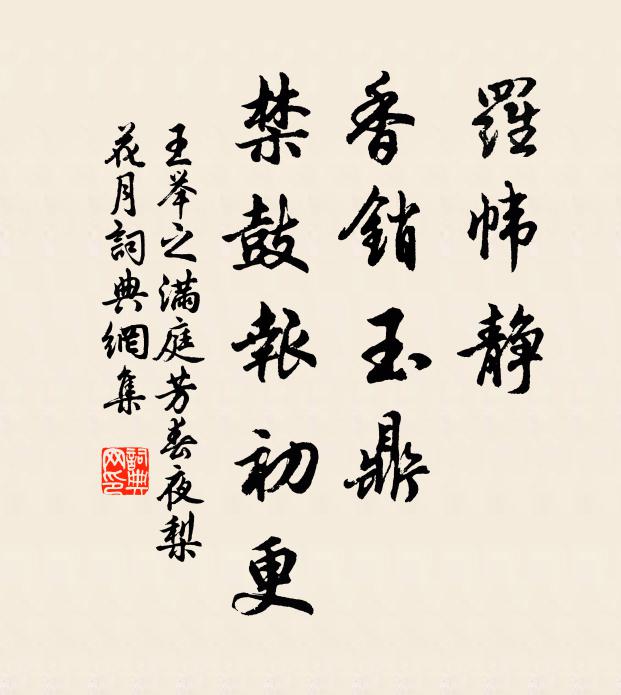 羅幃静
香銷玉鼎
禁鼓報初更
王举之满庭芳春夜梨
花月詞典網集
詞典网印